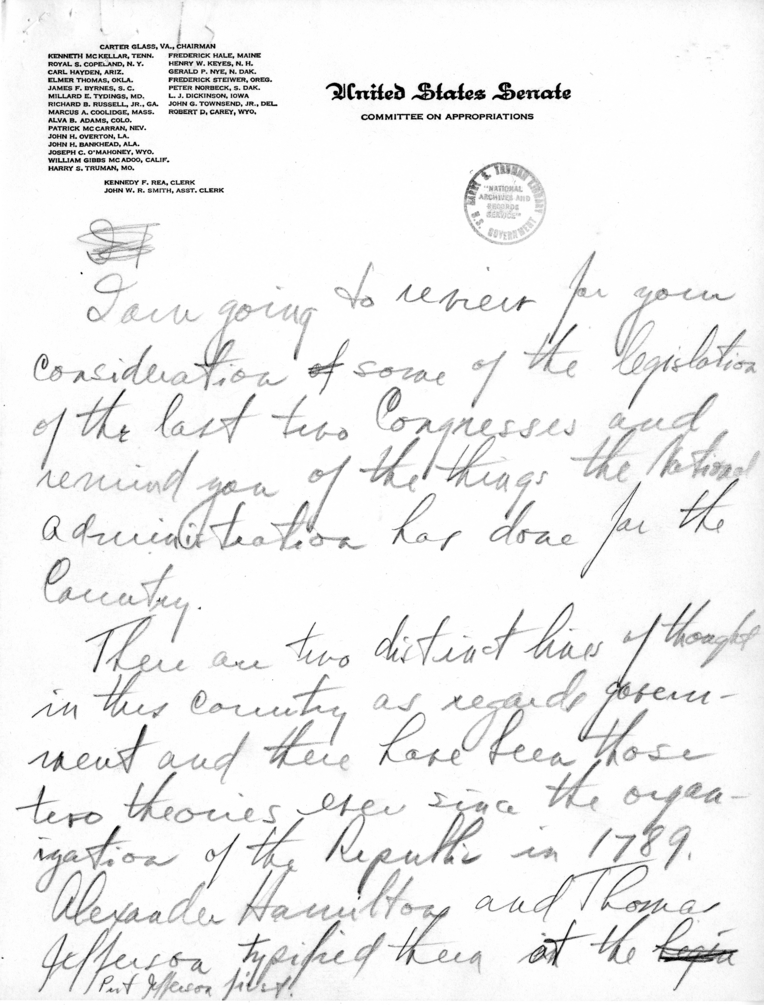 CARTER GLASS, VA., CHAIRMAN
KENNETH MCKELLAR, TENN. FREDERICK HALE, MAINE
ROYAL S. COPELAND, N. Y. HENRY W. KEYES, N. H.
CARL HAYDEN, ARIZ. GERALD P. NYE, N. DAK.
ELMER THOMAS, OKLA. FREDERICK STEIWER, OREG.
JAMES F. BYRNES, S. C. PETER NORBECK, S. DAK.
MILLARD E. TYDINGS, MD. L. J. DICKINSON, IOWA
RICHARD B. RUSSELL, JR., GA. JOHN G. TOWNSEND, JR., DEL.
MARCUS A. COOLIDGE, MASS. ROBERT D. CAREY, WYO.
ALVA B. ADAMS, COLO.
PATRICK MCCARRAN, NEV.
JOHN H. OVERTON, LA.
JOHN H. BANKHEAD, ALA.
JOSEPH C. O'MAHONEY, WYO.
WILLIAM GIBBS MCADOO, CALIF.
HARRY S. TRUMAN, MO.
KENNEDY F. REA, CLERK
JOHN W. R. SMITH, ASST. CLERK
United States Senate
COMMITTEE ON APPROPRIATIONS
HARRY S. TRUMAN LIBRARY
"NATIONAL
ARCHIVES AND
RECORDS
SERVICE"
U.S. GOVERNMENT
I am going to review for your
consideration of some of the legislation
of the last two Congresses and
remind you of the things the National
Administration has done for the
Country.
There are two distinct lines of thought
in this country as regards govern-
ment and there have been those
two theories ever since the organ-
ization of the Republic in 1789.
Alexander Hamilton and Thomas
Jefferson typified them at the begin
Put Jefferson first.